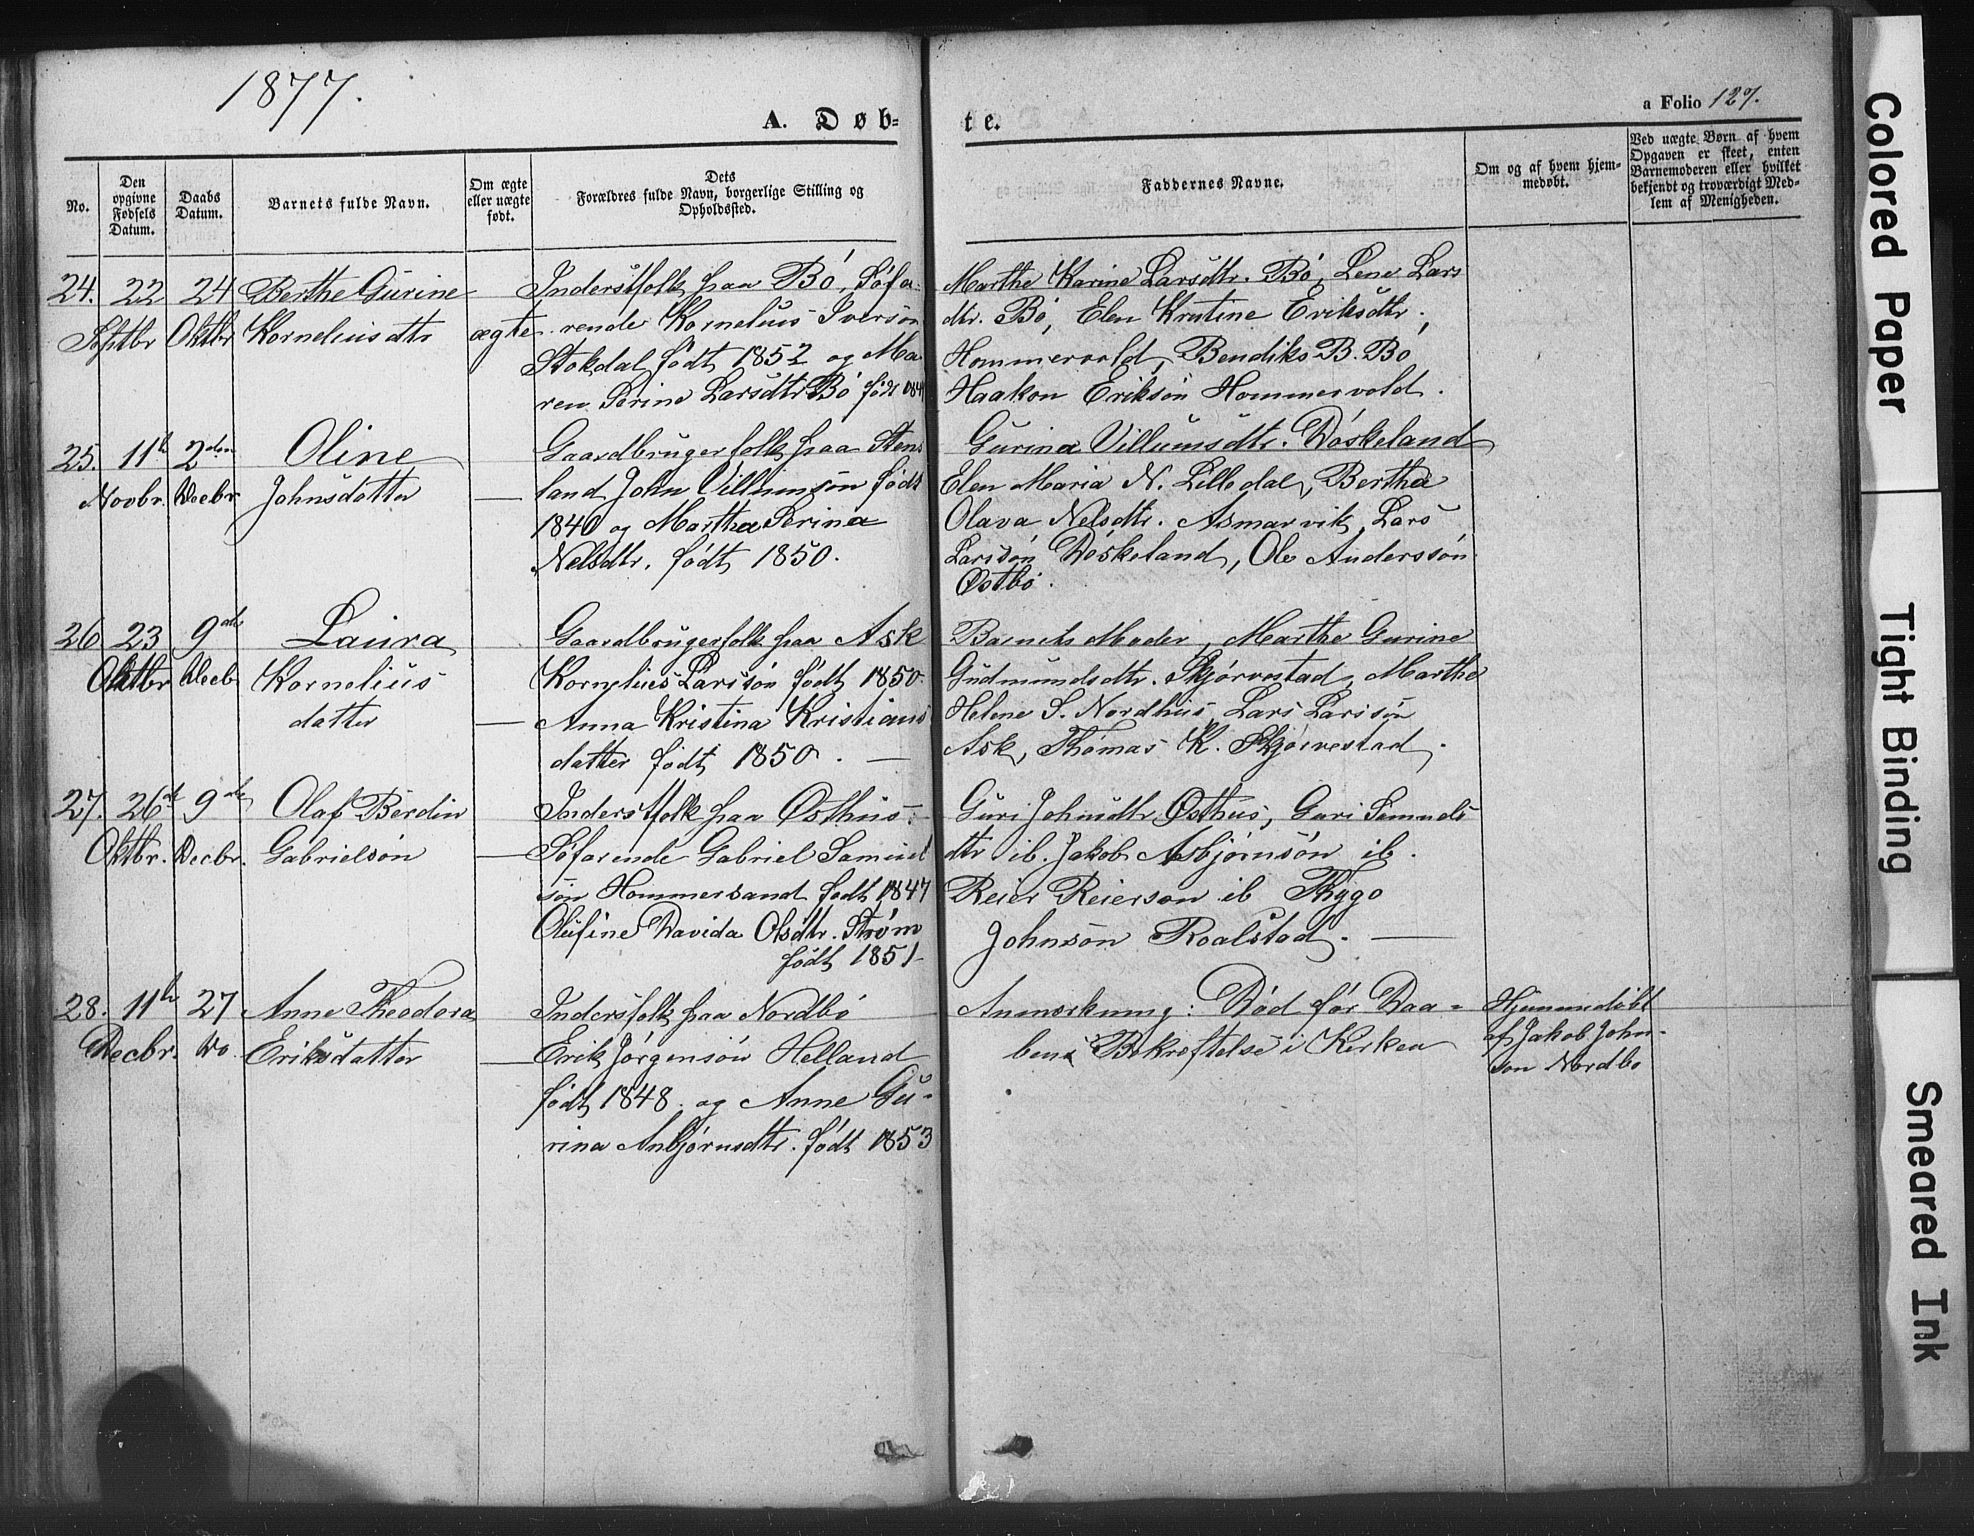 1877.
A. Døb=
te.
a Folio 127.
No.
Den opgivne Fødsels Datum.
Daabs Datum.
Barnets fulde Navn.
Om ægte eller uægte født.
Dets Forældres fulde Navn, borgerlige Stilling og Opholdssted.
Faddernes Navne.
Om og af hvem hjem-
medøbt.
Ved uægte Børn af hvem
Opgaven er skeet, enten
Barnemoderen eller hvilket
bekjendt og troværdigt Med-
lem af Menigheden.
24. 22 24 Berthe Gurine
Septbr Oktbr Kornelius dtr ægte
Inderstfolk paa Bö, Söfa-
rende Kornelius Iverson
Stokdal født 1852 og Ma
ren Serine Larsdtr Bö født
Marthe Karine Larsdtr. Bö, Lene Lars
dtr. Bö, Elen Krutine Eriksdtr.,
Hommervold, Bendiks B. Bö
Haakon Eriksön Hommervold.
25. 11te 2den Oline
Novbr. Decbr Johnsdatter —
Gaardbrugerfolk paa Stens
land John Villumsön født
1840 og Marthea Serina
Nelsdtr. født 1850.
Gurina Villumsdtr. Döskeland
Elen Maria N. Lilledal, Berthe
Olava Nelsdtr. Asmarvik, Lars
Larssön Döskeland, Ole Anderssön
Østbö.
26 23 9de Laura
Oktbr Decb Kornelius
datter —
Gaardbrugerfolk paa Ask
Kornelius Larssön født 1850.
Anna Kristina Kristians
datter født 1850. —
Barnets Moder, Marthe Gurine
Gudmundsdtr. Skjörvestad, Marthe
Helene S. Nordhus, Lars Larssön
Ask, Thomas K. Skjörvestad.
27. 26de 9de Olaf Berdin
Oktbr. Decbr. Gabrielsön —
Inderstfolk paa Østhus. —
Söfarende Gabriel Samuel
sön Hommersand født 1847
Olefine Davida Olsdtr. Ström
født 1851
Guri Johnsdtr. Østhus, Guri Samuels
dtr ib. Jakob Asbjörnsön ib.
Reier Reierson ib Thygo
Johnsön Roalstad. —
28. 11te 27 Anne Theodora
Decbr. Do. Eriksdatter —
Indersfolk paa Nordbö
Erik Jörgensön Helland
födt 1848. og Anne Gu-
rina Anbjörnsdtr. født 1853
Anmærkning: Död för Daa=
bens Bekræftelse i Kirken
Hjemmedöbt
af Jakob John-
son Nordbo
Colored Paper
Tight Binding
Smeared Ink